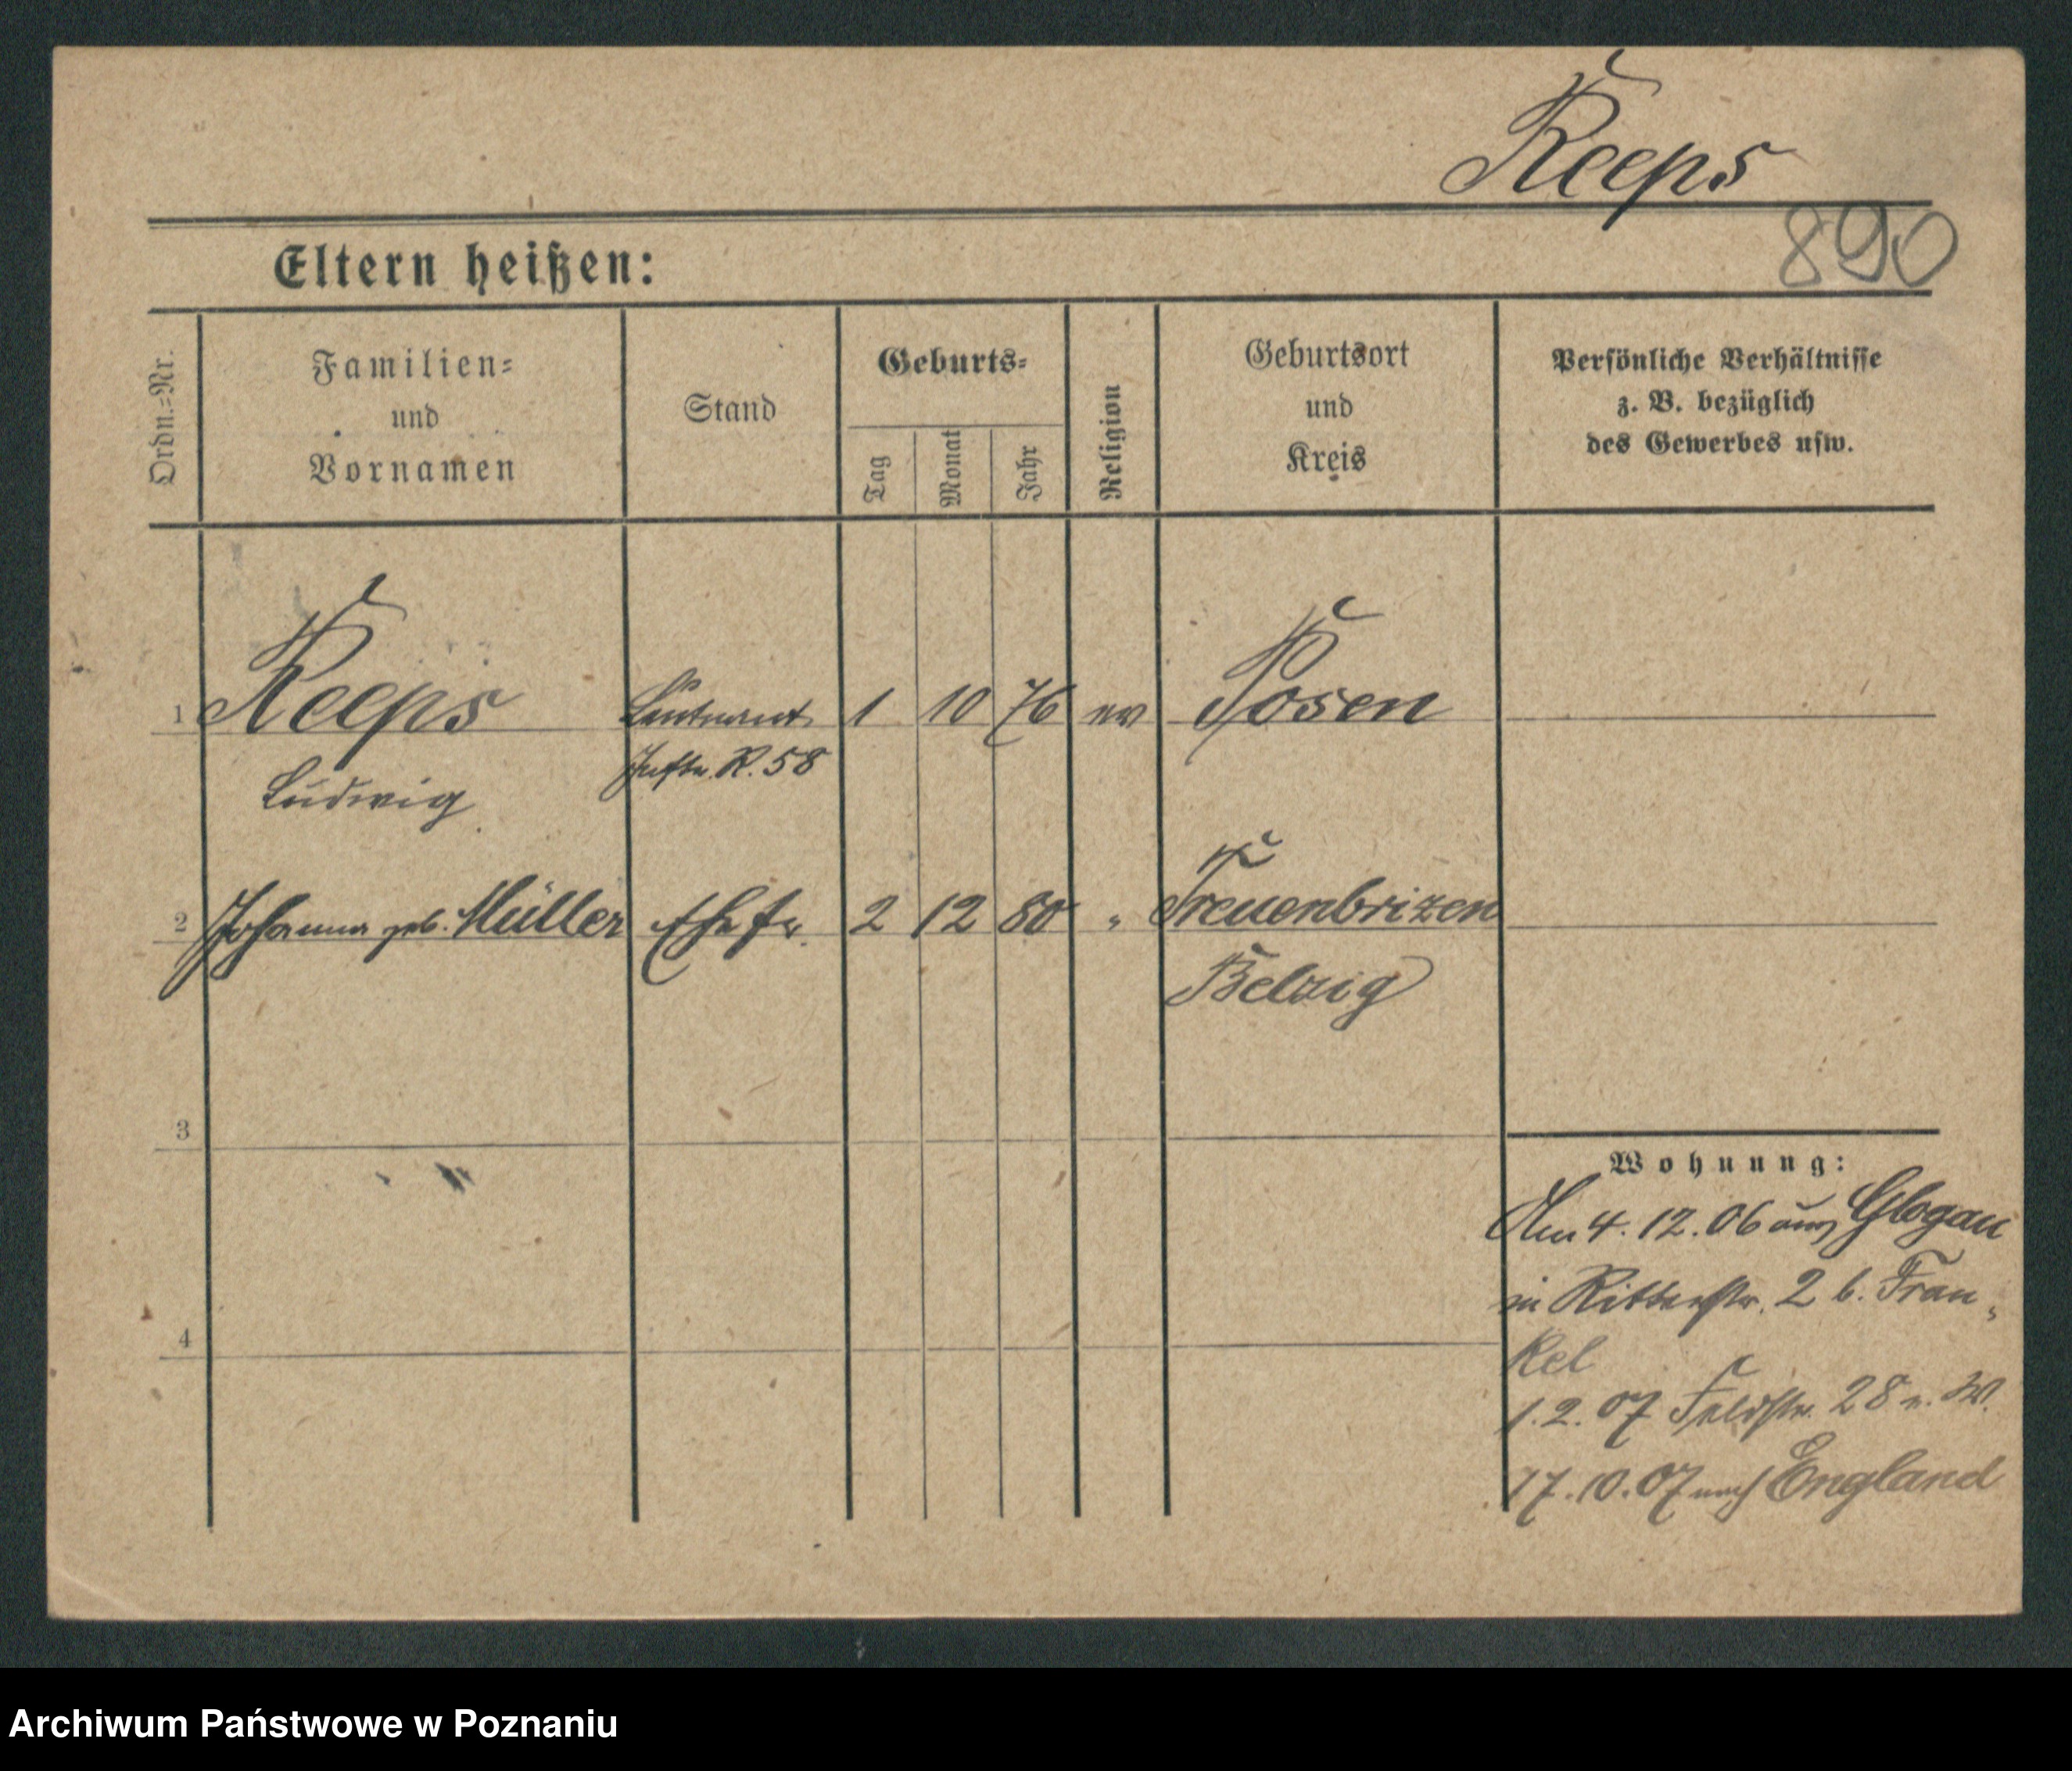 Keeps
890
Eltern heißen:
Ordn.=Nr.
Familien=
und
Vornamen
Stand
Geburts=
Tag
Monat
Jahr
Religion
Geburtsort
und
Kreis
Persönliche Verhältnisse
z. B. bezüglich
des Gewerbes usw.
1 Keeps Leutnant 1 10 76 ev Posen
Inftr. R. 58
Ludwig
2 Johanna geb. Müller Ehefr. 2 12 80 " Treuenbrizen
Belzig
3
Wohnung:
Am 4. 12. 06 aus Glogau
in Ritterstr. 2 b. Fran„
kel
4
1. 2. 07 Feldstr. 28 n. W.
17. 10. 07 nach England
Archiwum Państwowe w Poznaniu